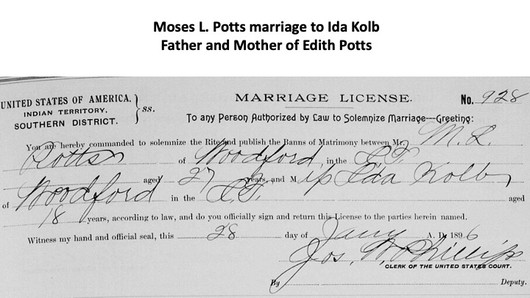 Moses L. Potts marriage to Ida Kolb
Father and Mother of Edith Potts
UNITED STATES OF AMERICA,
INDIAN TERRITORY,
SOUTHERN DISTRICT.
} ss.
MARRIAGE LICENSE.
No. 928
To any Person Authorized by Law to Solemnize Marriage—Greeting:
You are hereby commanded to solemnize the Rite and publish the Banns of Matrimony between Mr. M. L.
Potts of Woodford, in the I.T.
aged 27 years, and Miss Ida Kolb
of Woodford in the I.T. aged
18 years, according to law, and do you officially sign and return this License to the parties herein named.
Witness my hand and official seal, this 28 day of Jany A. D. 1896
Jos. W. Phillips
CLERK OF THE UNITED STATES COURT.
By Deputy.